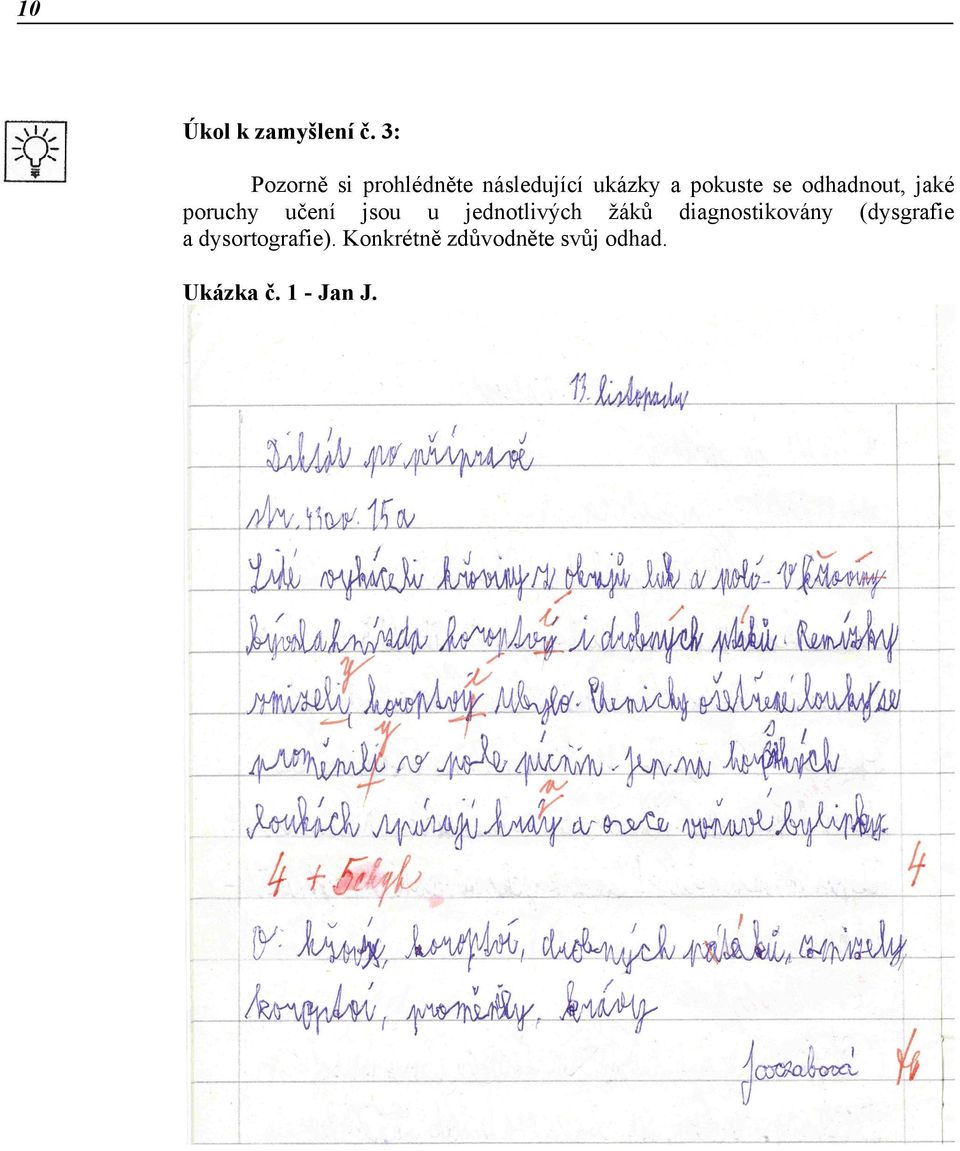 10
Úkol k zamyšlení č. 3:
Pozorně si prohlédněte následující ukázky a pokuste se odhadnout, jaké
poruchy učení jsou u jednotlivých žáků diagnostikovány (dysgrafie
a dysortografie). Konkrétně zdůvodněte svůj odhad.
Ukázka č. 1 - Jan J.
13. listopadu
Diktát po přípravě
str. 43 cv. 15 a
Lidé vykáceli křoviny z okrajů luk a polí. V křoviny
bývala hnízda koroptvý í i drobných ptáků. Remízky
zmizeli, y koroptvý í ubylo. Chemicky ošetřené louky se
proměnili y v pole pícnin. Jen na horských
loukách spásají kráv a ovce voňavé bylinky.
4 + 5 chyb 4
O: křoví, koroptví, drobných ptáků, zmizely,
koroptví, proměnily, krávy